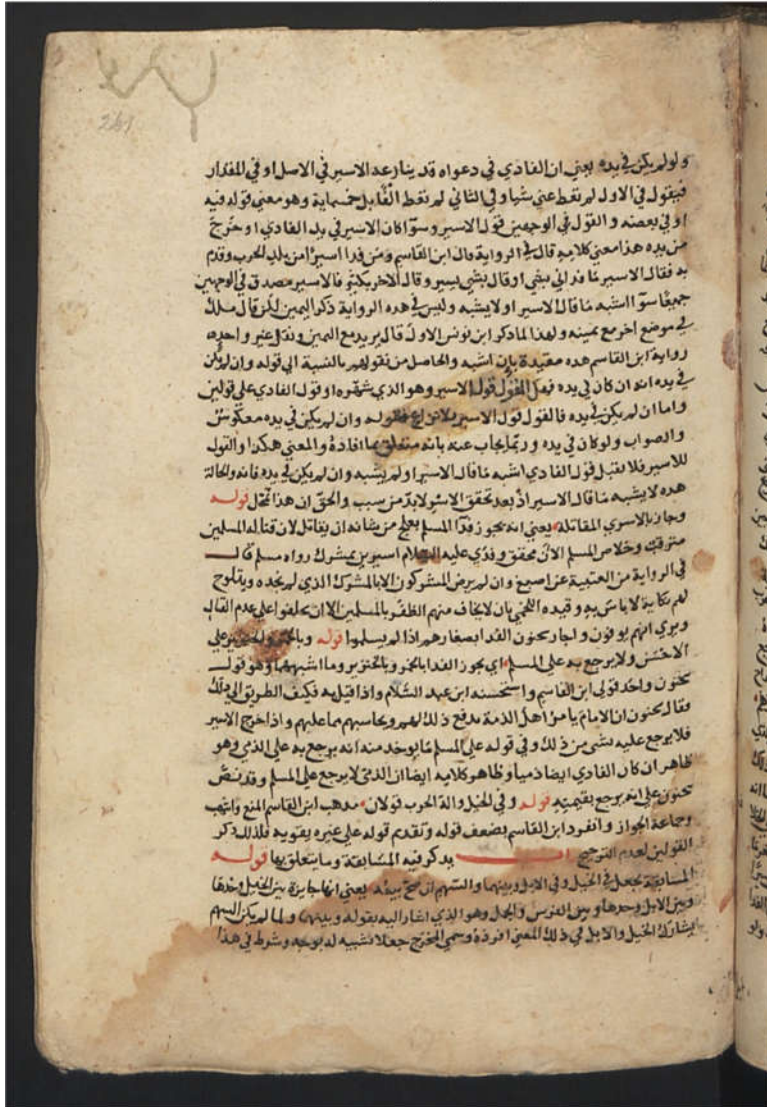 261
ولو لم يكن في يده يعني ان الفادي في دعواه قد ينازعه الاسير في الاصل او في المقدار
فيقول في الاول لم تعط عني شيا وفي الثاني لم تعط القابل خمسماية وهو معني قوله فيه
او في بعضه والقول في الوجهين قول الاسير وسوآ كان الاسير في يد الفادي او خرج
من يده هذا معني كلامه قال في الرواية قال ابن القاسم ومن فدا اسيرا من بلد الحرب وقدم
به فقال الاسير ما فداني بشي او قال بشي يسير وقال الاخر بكثير فالاسير مصدق في الوجهين
جميعا سوآ اشبه ما قال الاسير او لا يشبه وليس في هذه الرواية ذكر اليمين لكن قال ملك
في موضع اخر مع يمينه ولهذا لما ذكر ابن يونس الاول قال يريد مع اليمين ونقل غير واحد
رواية ابن القاسم هذه مقيدة بان اشبه والحاصل من نقولهم بالنسبة الي قوله وان لم يكن
في يده انه ان كان في يده فهل القول قول الاسير وهو الذي شهره او قول الفادي علي قولين
واما ان لم يكن في يده فالقول قول الاسير بلا نزاع فقوله وان لم يكن في يده معكوس
والصواب ولو كان في يده وربما يجاب عنه بانه متعلق بما افاده والمعني هكذا والقول
للاسير فلا يقبل قول الفادي اشبه ما قال الاسير او لم يشبه وان لم يكن في يده فانه والحالة
هذه لا يشبه ما قال الاسير اذ بعد تحقق الاسر لابد من سبب والحق ان هذا تمحل قوله
وجاز بالاسري المقاتلة يعني انه يجوز فدا المسلم بعلج من شانه ان يقاتل لان قتاله المسلمين
مترقب وخلاص المسلم الان محقق وفدي عليه السلام اسيرين بمشرك رواه مسلم قال
في الرواية من العتبية عن اصبغ وان لم يرض المشركون الا بالمشرك الذي له نجده وبعلوج
لهم نكاية لا باس به وقيده اللخمي بان لا يخاف منهم الظفر بالمسلمين الا ان يحلفوا علي عدم القتال
ويري انهم يوفون واجاز سحنون الفدا بصغارهم اذا لم يسلموا قوله وبالخمر والخنزير علي
الاحسن ولا يرجع به علي المسلم اي يجوز الفدا بالخمر وبالخنزير وما اشبههما وهو قول
سحنون واحد قولي ابن القاسم واستحسنه ابن عبد السلام واذا قيل به فكيف الطريق الي ذلك
فقال سحنون ان الامام يامر اهل الذمة بدفع ذلك لهم ويحاسبهم بما عليهم واذا خرج الاسير
فلا يرجع عليه بشي من ذلك وفي قوله علي المسلم ما يوخذ منه انه يرجع به علي الذمي وهو
ظاهر ان كان الفادي ايضا ذميا وظاهر كلامه ايضا ان الذمي لا يرجع علي المسلم وقد نص
سحنون علي انه يرجع بقيمته قوله وفي الخيل والة الحرب قولان مذهب ابن القاسم المنع واشهب
وجماعة الجواز وانفرد ابن القاسم يضعف قوله وتقديم قوله علي غيره يقويه فلذلك ذكر
القولين لعدم الترجيح يذكر فيه المسابقة وما يتعلق بها قوله
المسابقة بجعل في الخيل وفي الابل وبينهما والسهم ان صح بيعه يعني انها جايزة بين الخيل وحدها
وبين الابل وحدها وبين الفرس والجمل وهو الذي اشار اليه بقوله وبينهما ولما لم يكن السهم
يشارك الخيل والابل في ذلك المعني افرده وسمي المخرج جعلا تشبيه له بوجه وشرط في هذا